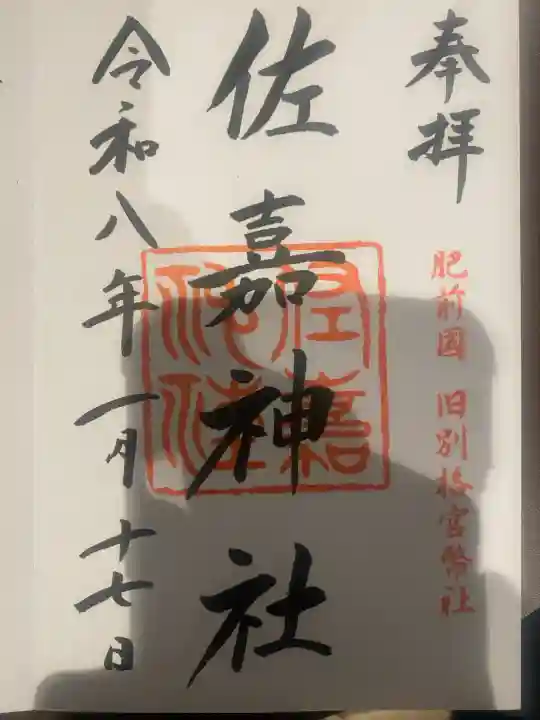 奉拝
肥前國 旧別格官幣社
佐嘉神社
佐嘉神社
令和八年一月十七日